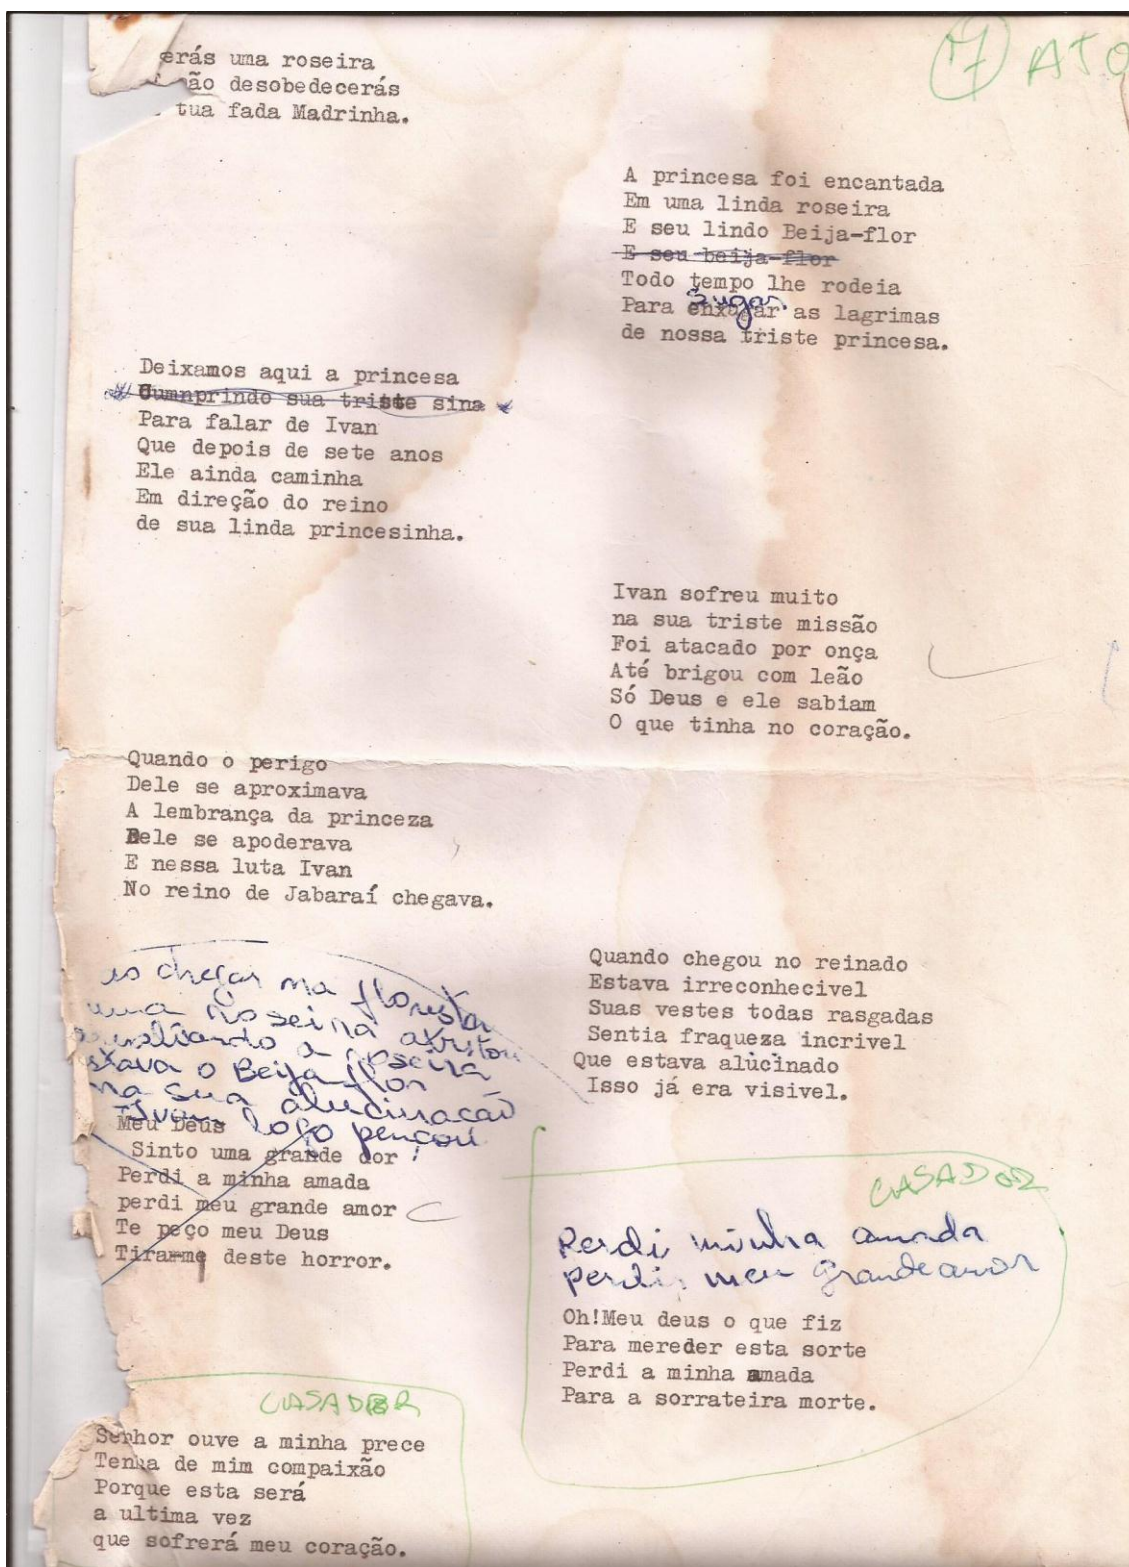 7 ATO
erás uma roseira
ão desobedecerás
tua fada Madrinha.
A princesa foi encantada
Em uma linda roseira
E seu lindo Beija-flor
E seu beija-flor
Todo tempo lhe rodeia
sugar
Para enxugar as lagrimas
de nossa triste princesa.
Deixamos aqui a princesa
Cumnprindo sua triste sina
Para falar de Ivan
Que depois de sete anos
Ele ainda caminha
Em direção do reino
de sua linda princesinha.
Ivan sofreu muito
na sua triste missão
Foi atacado por onça
Até brigou com leão
Só Deus e ele sabiam
O que tinha no coração.
Quando o perigo
Dele se aproximava
A lembrança da princeza
Dele se apoderava
E nessa luta Ivan
No reino de Jabaraí chegava.
Quando chegou no reinado
Estava irreconhecivel
Suas vestes todas rasgadas
Sentia fraqueza incrivel
Que estava alucinado
Isso já era visivel.
chegar na floresta
uma Roseira avistou
a roseira
estava o Beija flor
na sua alucinação
Ivan logo pençou
Meu Deus
Sinto uma grande dor
Perdi a minha amada
perdi meu grande amor
Te peço meu Deus
Tirar-me deste horror.
CASADOR
Perdi minha amada
perdi, meu grande amor
Oh!Meu deus o que fiz
Para mereder esta sorte
Perdi a minha amada
Para a sorrateira morte.
CASADOR
Senhor ouve a minha prece
Tenha de mim compaixão
Porque esta será
a ultima vez
que sofrerá meu coração.